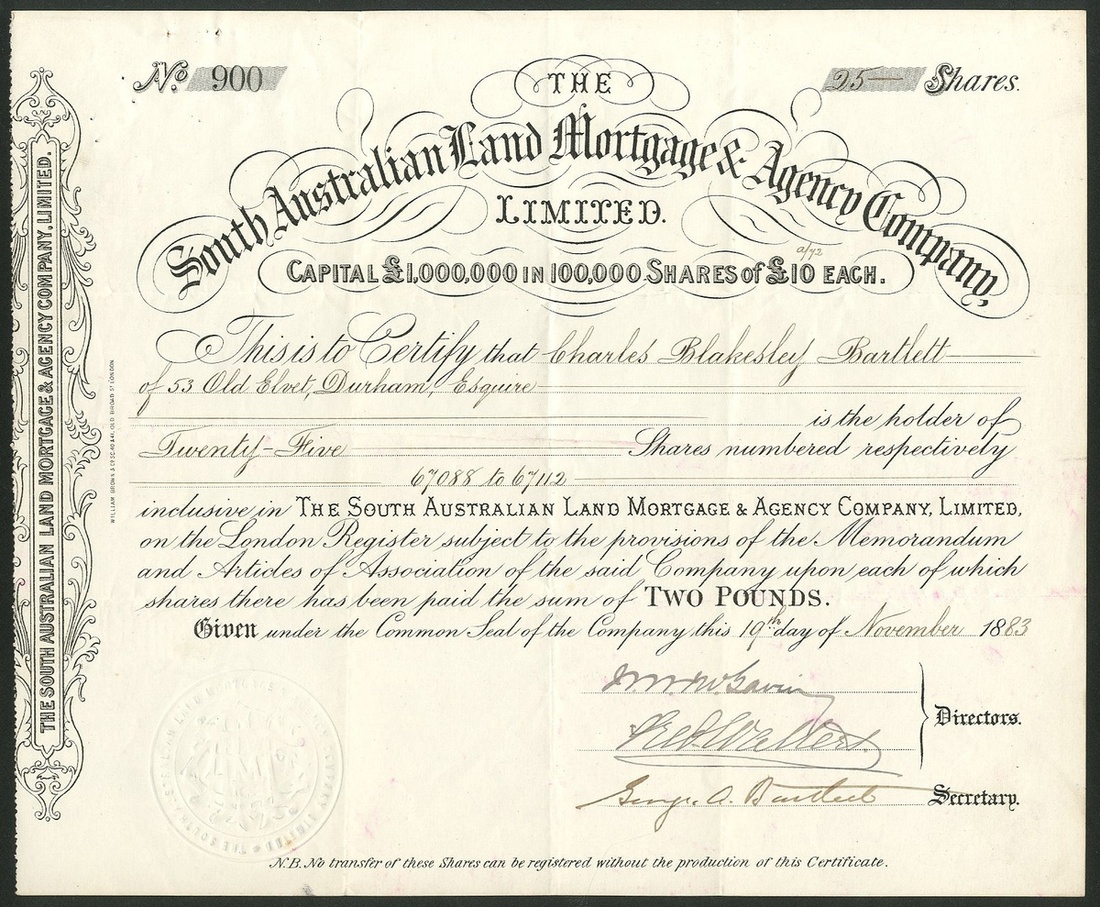 No. 900
25 Shares.
THE
South Australian Land Mortgage & Agency Company,
LIMITED.
CAPITAL £1,000,000 IN 100,000 SHARES of £10 EACH.
This is to Certify that Charles Blakesley Bartlett
of 53 Old Elvet, Durham, Esquire
is the holder of
Twenty-Five Shares numbered respectively
67088 to 67112
inclusive in THE SOUTH AUSTRALIAN LAND MORTGAGE & AGENCY COMPANY, LIMITED,
on the London Register subject to the provisions of the Memorandum
and Articles of Association of the said Company upon each of which
shares there has been paid the sum of TWO POUNDS.
Given under the Common Seal of the Company this 19th day of November 1883
Directors.
George A. Bartlett Secretary.
N.B. No transfer of these Shares can be registered without the production of this Certificate.
THE SOUTH AUSTRALIAN LAND MORTGAGE & AGENCY COMPANY, LIMITED.